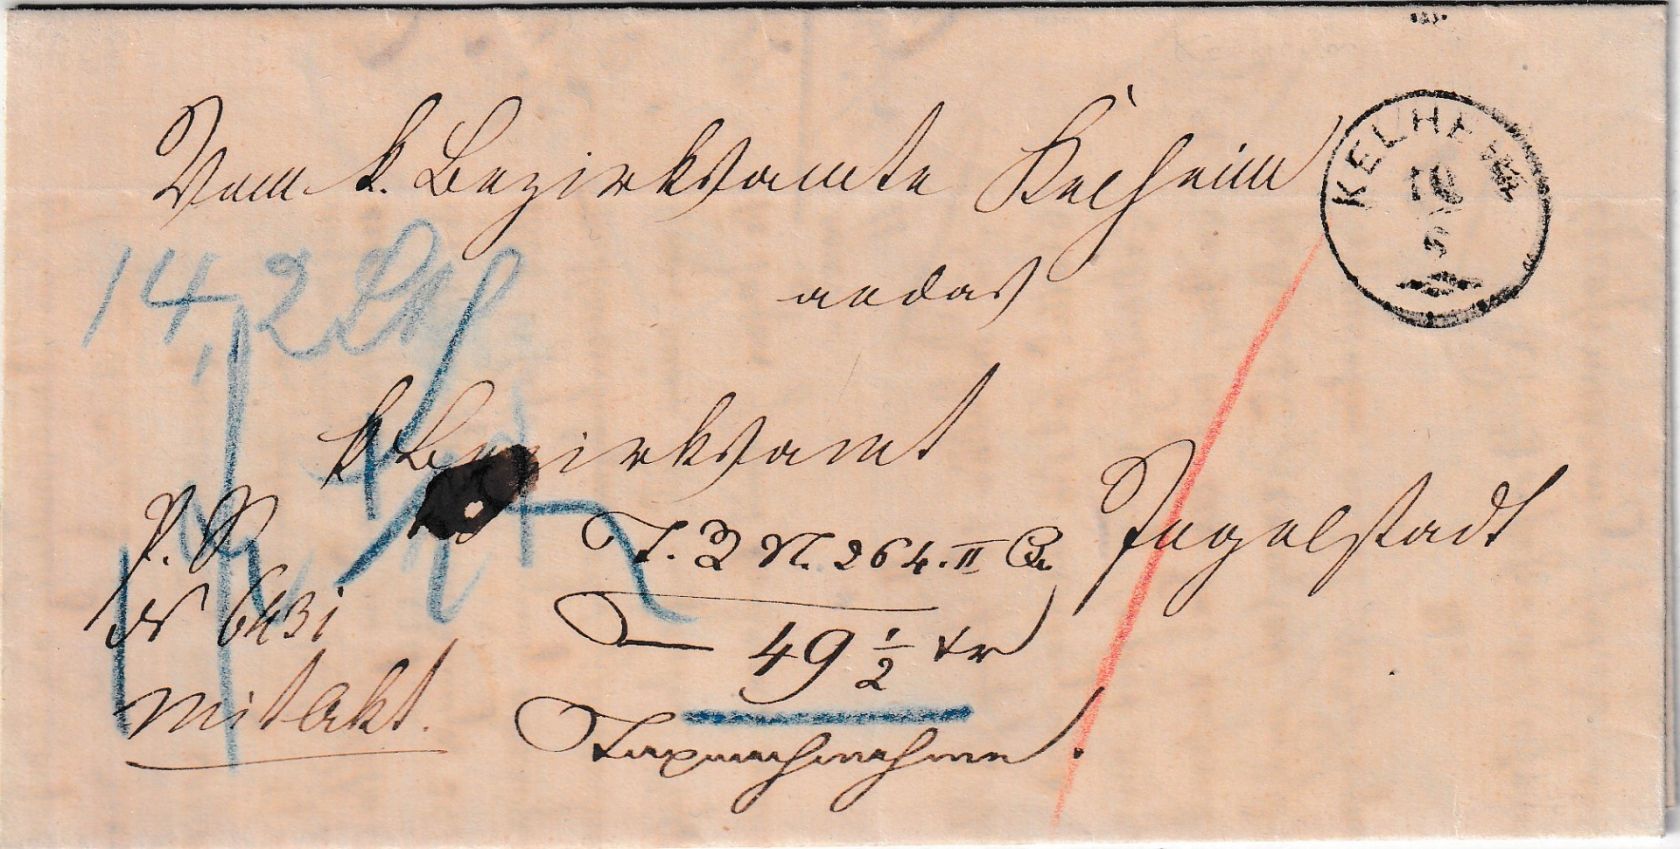 Vom k. Bezirksamte Kelheim
KELHEIM
10
5
an das
14,2 Lth
k Bezirksamt
Ingolstadt
P. S.
T. Z. N. 264. II
N 6431
49 1/2 kr
mit Akt.
Taxnachnahme.